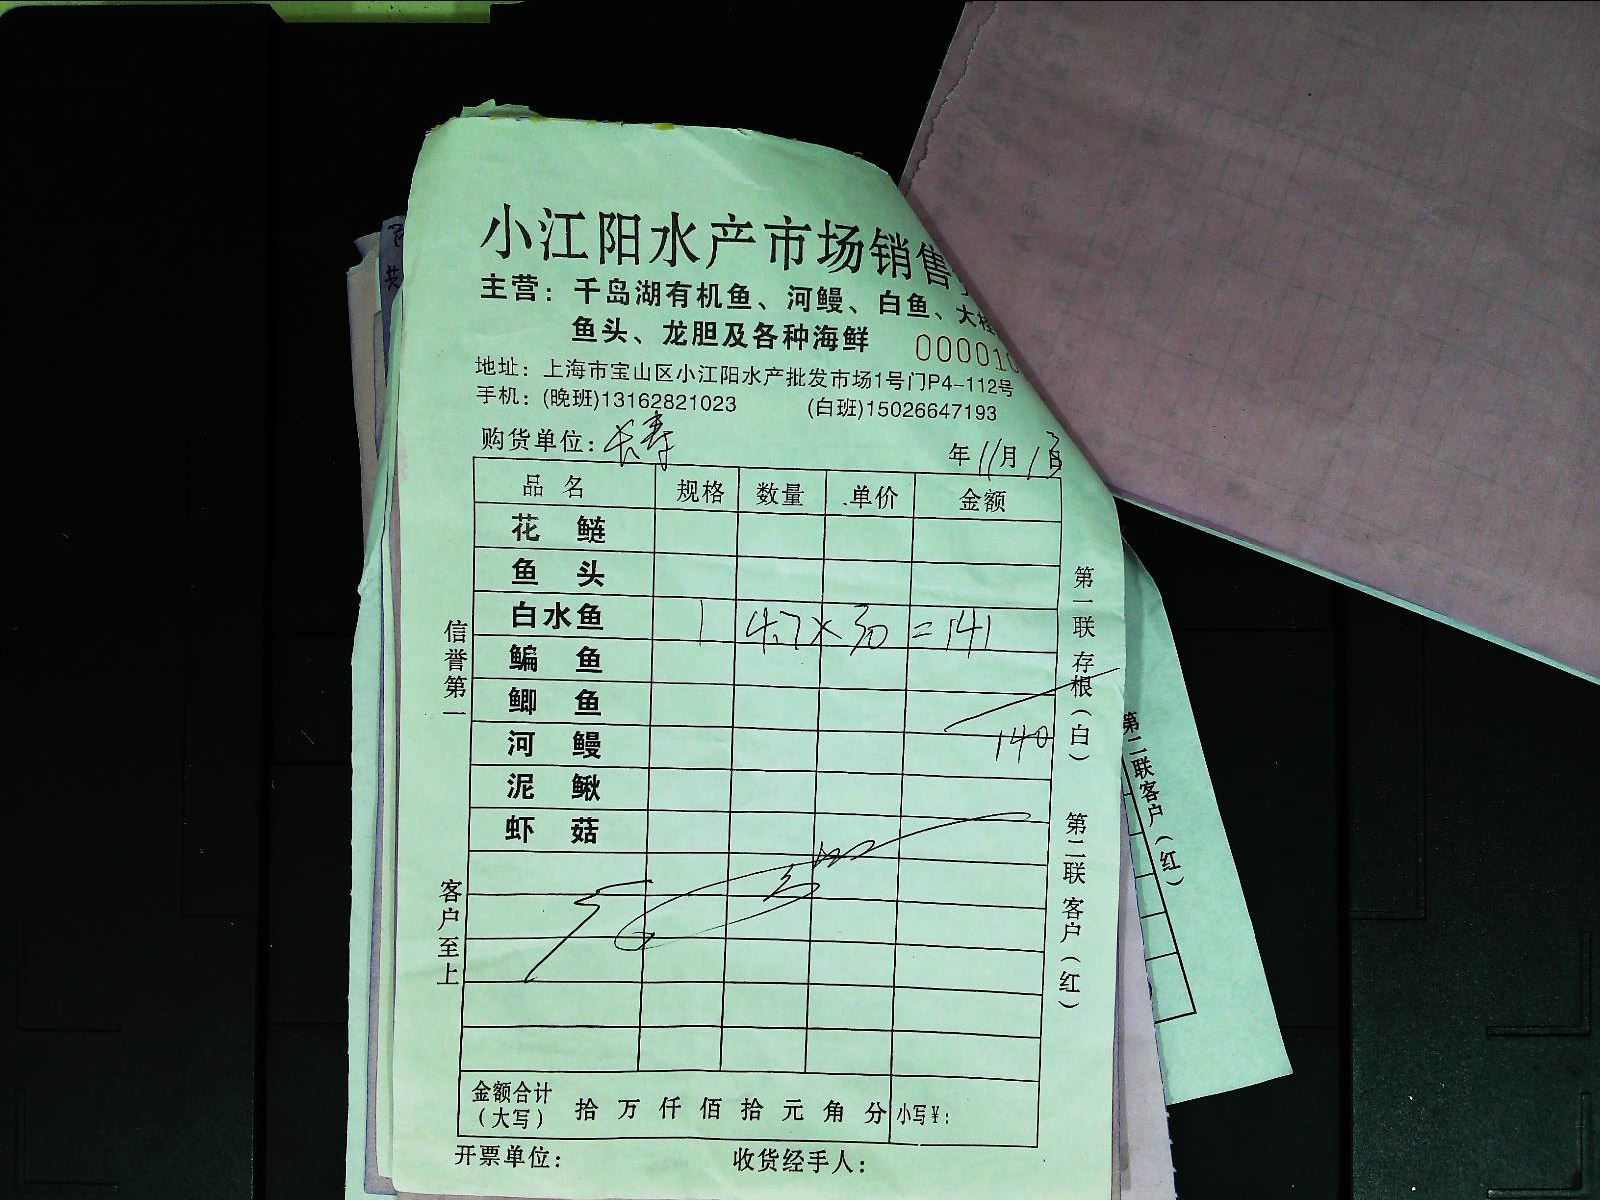 小江阳水产市场销售
主营：千岛湖有机鱼、河鳗、白鱼、大
鱼头、龙胆及各种海鲜
000010
地址：上海市宝山区小江阳水产批发市场1号门P4-112号
手机：(晚班)13162821023 (白班)15026647193
购货单位：长寿 年11月13日
品名 规格 数量 单价 金额
花鲢
鱼头
白水鱼 1 4.7×30=141
鳊鱼
鲫鱼
河鳗 140
泥鳅
虾菇
金额合计（大写） 拾万仟佰拾元角分 小写¥：
开票单位： 收货经手人：
信誉第一
客户至上
第一联 存根（白）
第二联 客户（红）
第二联客户（红）